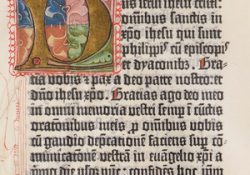 omnibus sanctis in
xp̄o ihesu qui sunt
philippis cū episcopis
et dyaconibꝰ. Gracia
vobis ⁊ pax a deo patre nostro ⁊ do-
mino ihesu xp̄o. Gracias ago deo meo
in omni memoria vestri semꝑ ī cūctis
oracōnibus meis ꝓ omnibus vobis
cū gaudio deꝓcacōne faciens suꝑ co-
municacōne vestrā in euāgelio xp̄i a